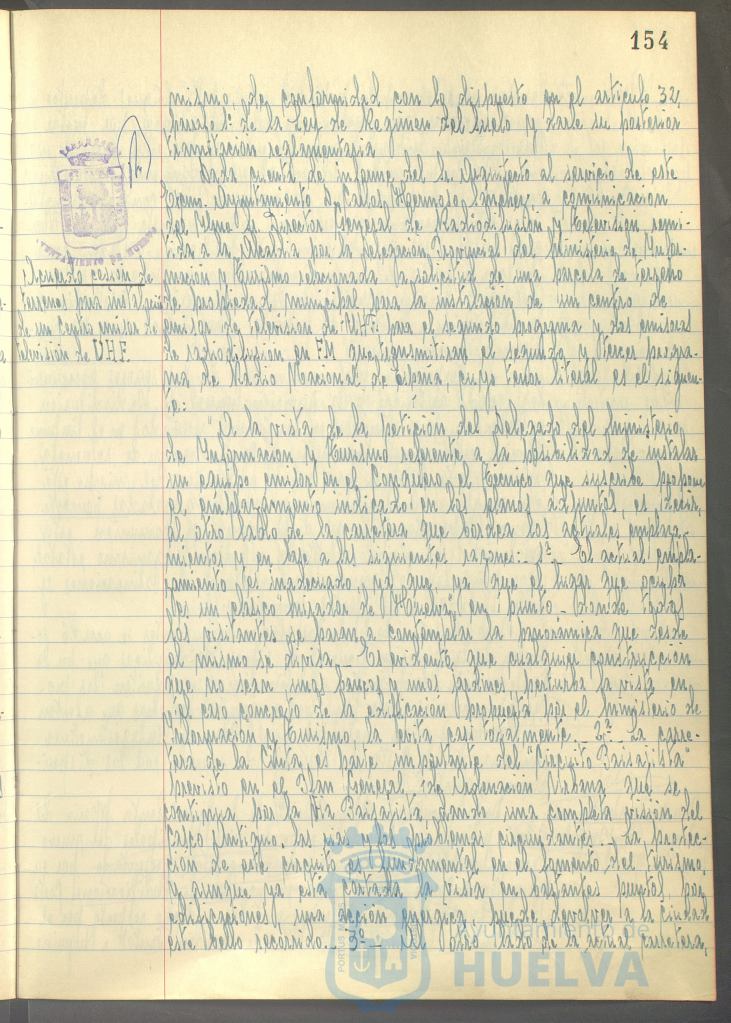 154
mismo, de conformidad con lo dispuesto en el articulo 32,
parrafo 1º de la Ley de Regimen del Suelo y darle su posterior
tramitacion reglamentaria
Dada cuenta de informe del Sr. Arquitecto al servicio de este
Excmo. Ayuntamiento D. Carlos Hermoso Sanchez a comunicacion
del Ilmo. Sr. Director General de Radiodifusion y Television remi-
tida a la Alcaldia por la Delegacion Provincial del Ministerio de Infor-
macion y Turismo relacionada la solicitud de una parcela de terreno
de propiedad municipal para la instalacion de un centro de
emisor de television de UHF. para el segundo programa y dos emisoras
de radiodifusion en FM que transmitiran el segundo y tercer progra-
ma de Radio Nacional de España, cuyo tenor literal es el siguien-
te:
Acuerdo cesión de
terrenos para instalación
de un Centro emisor de
televisión de UHF.
AYUNTAMIENTO DE HUELVA
"A la vista de la peticion del Delegado del Ministerio
de Informacion y Turismo referente a la posibilidad de instalar
un equipo emisor en el Conquero, el Técnico que suscribe propone
el emplazamiento indicado en los planos adjuntos, es decir,
al otro lado de la carretera que bordea los actuales emplaza-
mientos y en base a las siguientes razones.- 1ª.- El actual empla-
zamiento es inadecuado, ya que, ya que el lugar que ocupa
es un clásico "mirador de Huelva", en punto donde todos
los visitantes se paran a contemplar la panorámica que desde
el mismo se divisa.- Es evidente que cualquier construcción
que no sean unos bancos y unos jardines, perturba la vista en
el caso concreto de la edificación propuesta por el Ministerio de
Información y Turismo, la evita casi totalmente.- 2ª.- La carre-
tera de la Cinta, es parte importante del "Circuito Paisajista"
previsto en el Plan General de Ordenación Urbana que se
continua por la Via Paisajista dando una completa visión del
Casco Antiguo, las rias y los problemas circundantes.- La protec-
ción de este circuito es fundamental en el fomento del turismo
y aunque ya esta cortada la vista en bastantes puntos por
edificaciones, una acción energica, puede devolver a la ciudad
este bello recorrido.- 3º.- Al otro lado de la actual carretera,
PORTUS MARIS
Ayuntamiento de
HUELVA